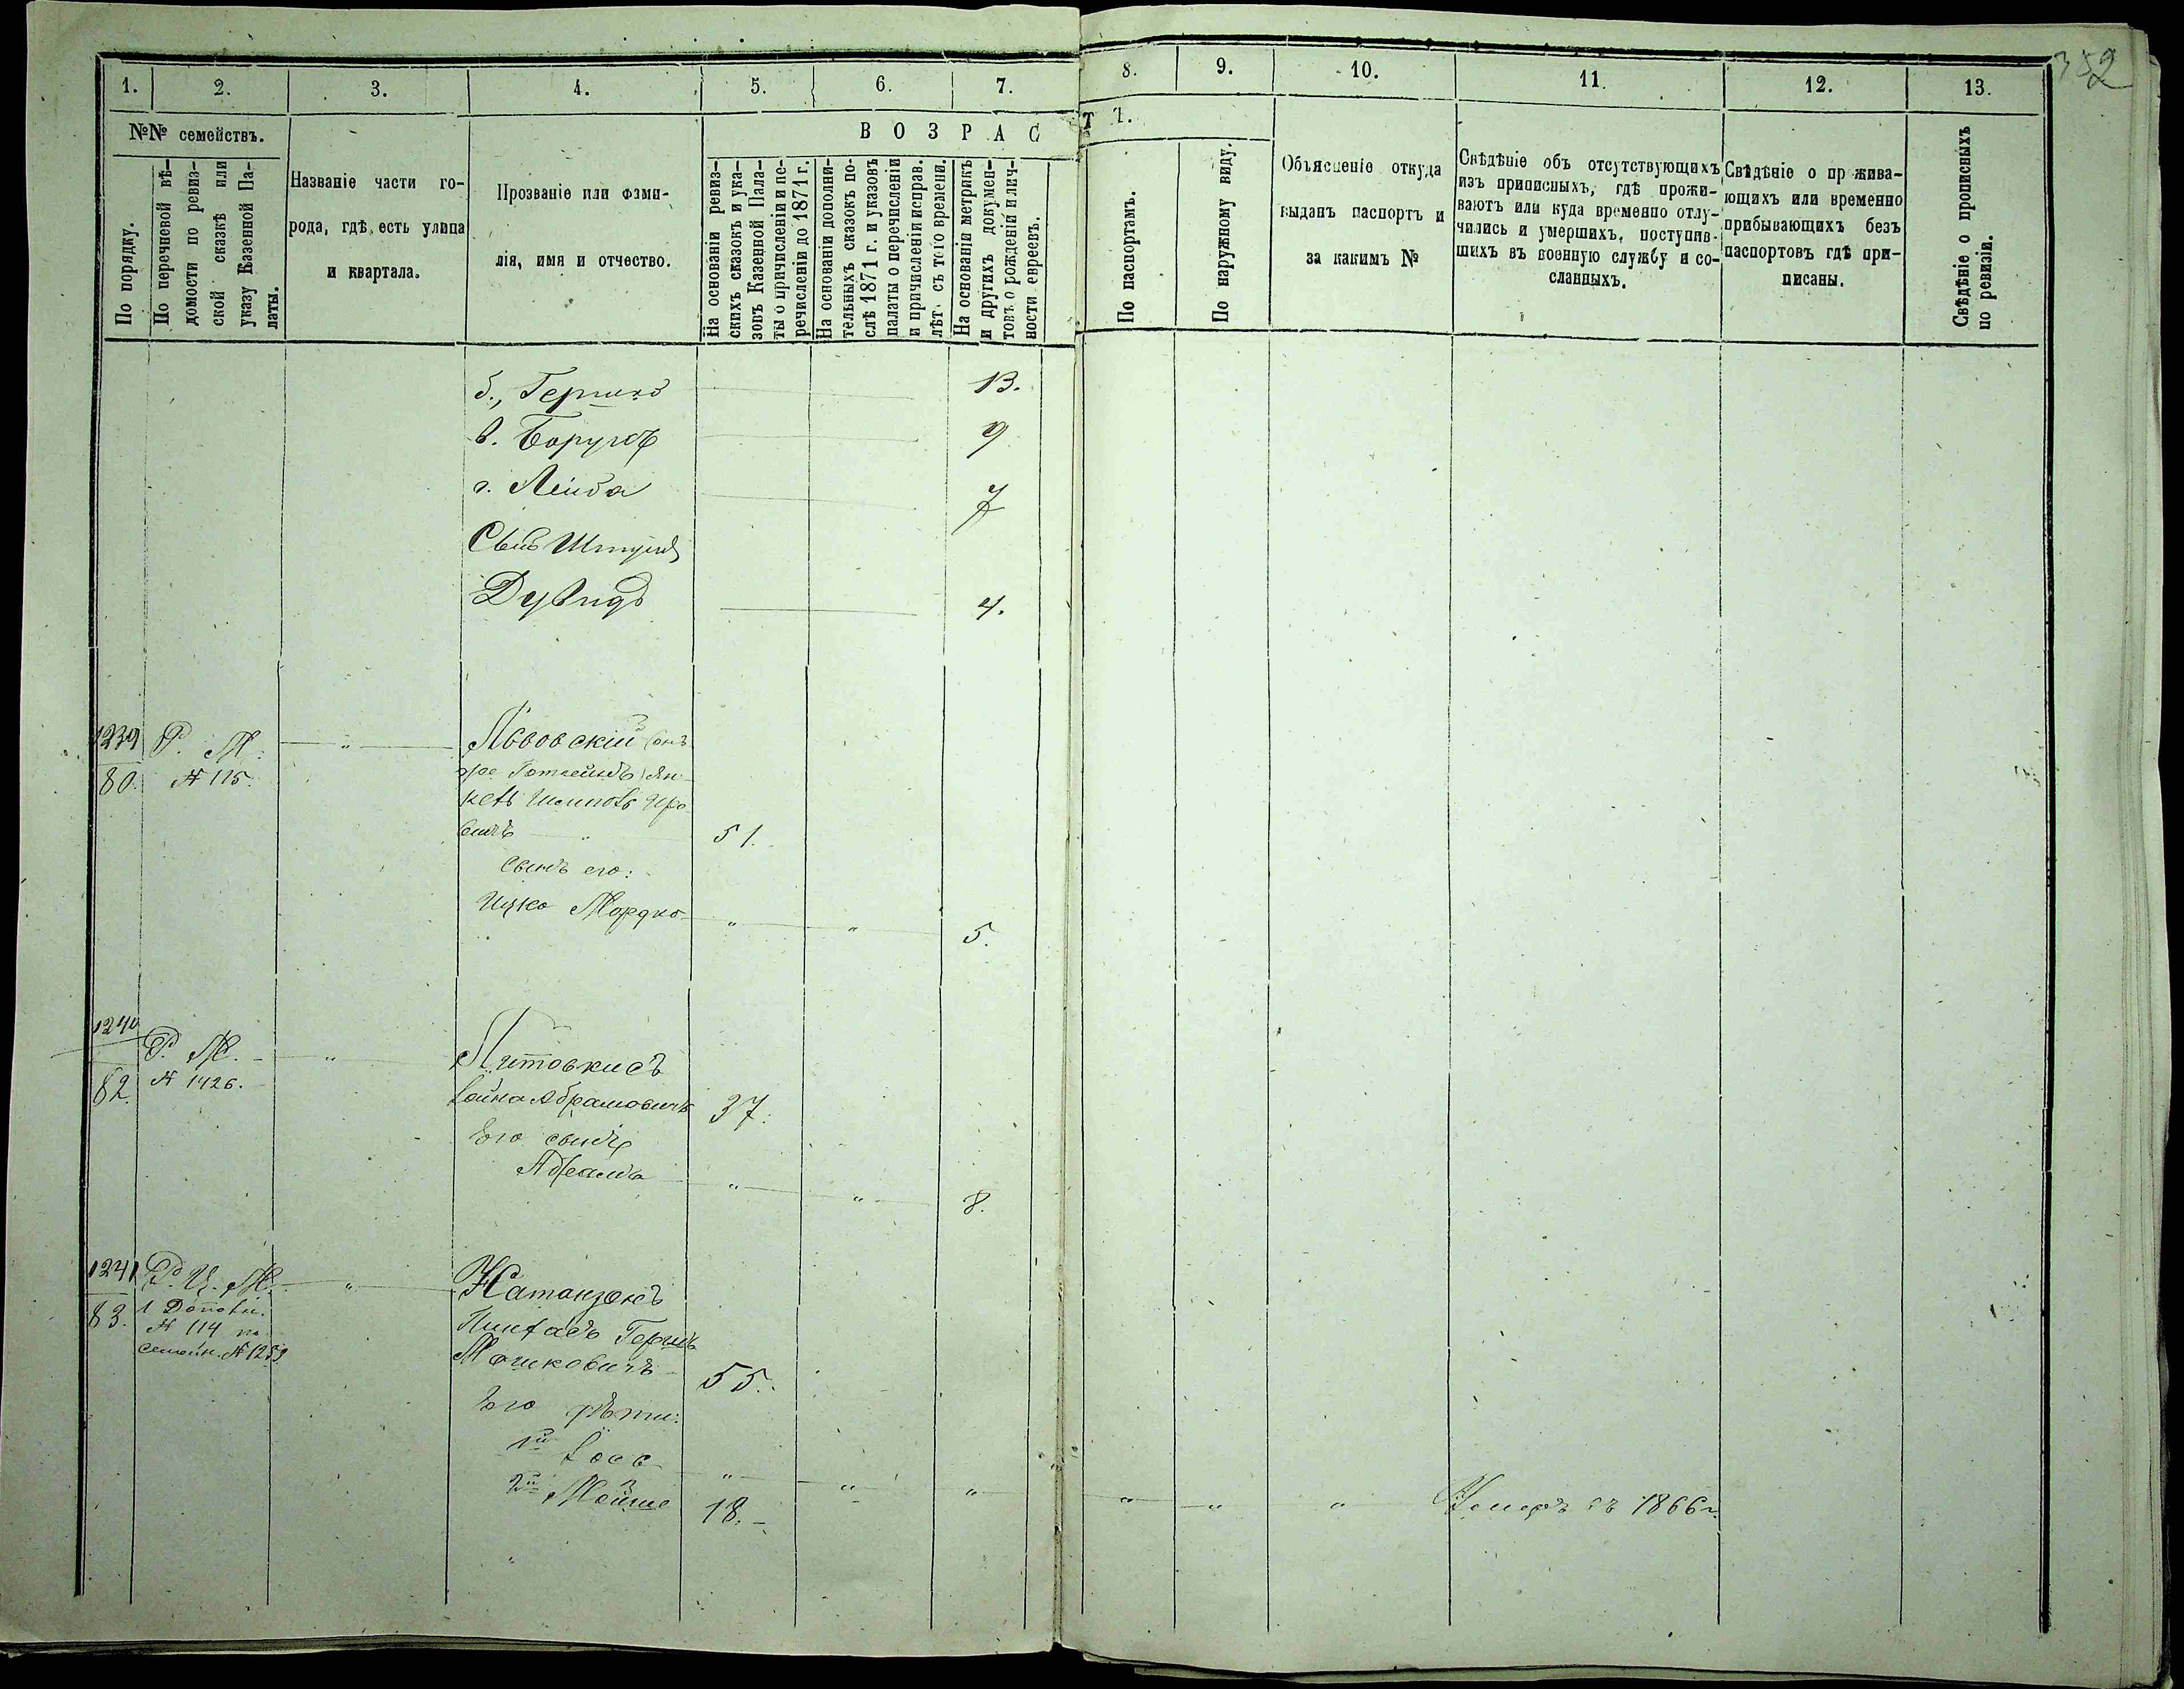 352
1. 2. 3. 4. 5. 6. 7. 8. 9. 10. 11. 12. 13.
№№ семействъ.
По порядку.
По перечневой вѣ-
домости по ревиз-
ской сказкѣ или
указу Казенной Па-
латы.
Названіе части го-
рода, гдѣ есть улица
и квартала.
Прозваніе или фами-
лія, имя и отчество.
ВОЗРАСТ
На основаніи ревиз-
скихъ сказокъ и ука-
зовъ Казенной Пала-
ты о причисленіи и пе-
речисленіи до 1871 г.
На основаніи дополни-
тельныхъ сказокъ по-
слѣ 1871 г. и указовъ
палаты о перечисленіи
и причисленіи исправ.
лѣт. съ того времени.
На основаніи метрикъ
и другихъ докумен-
товъ о рожденіи и лич-
ности евреевъ.
По паспортамъ.
По наружному виду.
Объясненіе откуда
выданъ паспортъ и
за какимъ №
Свѣдѣніе объ отсутствующихъ
изъ приписныхъ, гдѣ прожи-
ваютъ или куда временно отлу-
чились и умершихъ, поступив-
шихъ въ военную службу и со-
сланныхъ.
Свѣдѣніе о пр жива-
ющихъ или временно
прибывающихъ безъ
паспортовъ гдѣ при-
писаны.
Свѣдѣніе о прописныхъ
по ревизіи.
б., Гершко 13.
в. Борухъ 9
г. Лейба 7
Сынъ Шмуля
Дувидъ 4.
1239 Р. М. " Львовскій (онъ
80. № 115. же Готлейбъ) Ян-
кель
вичъ " 51.
Сынъ его:
Ицко Мордко " " 5.
1240 Р. М. " Литовкисъ
82. № 1426. Іойна Абрамовичъ 37.
Его сынъ
Абрамъ " " 8.
1241 Р. Ц. М. " Натанзонъ
83. 1 Дополн. Пинхасъ Гершъ
№ 114 по Мошковичъ 55.
семейн. № 1259
Его дѣти:
1й Іось " " " " " " Умеръ въ 1866 г.
2й Мойше 18.